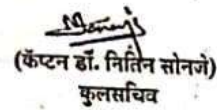 (कॅप्टन डॉ. नितिन सोनजे)
कुलसचिव